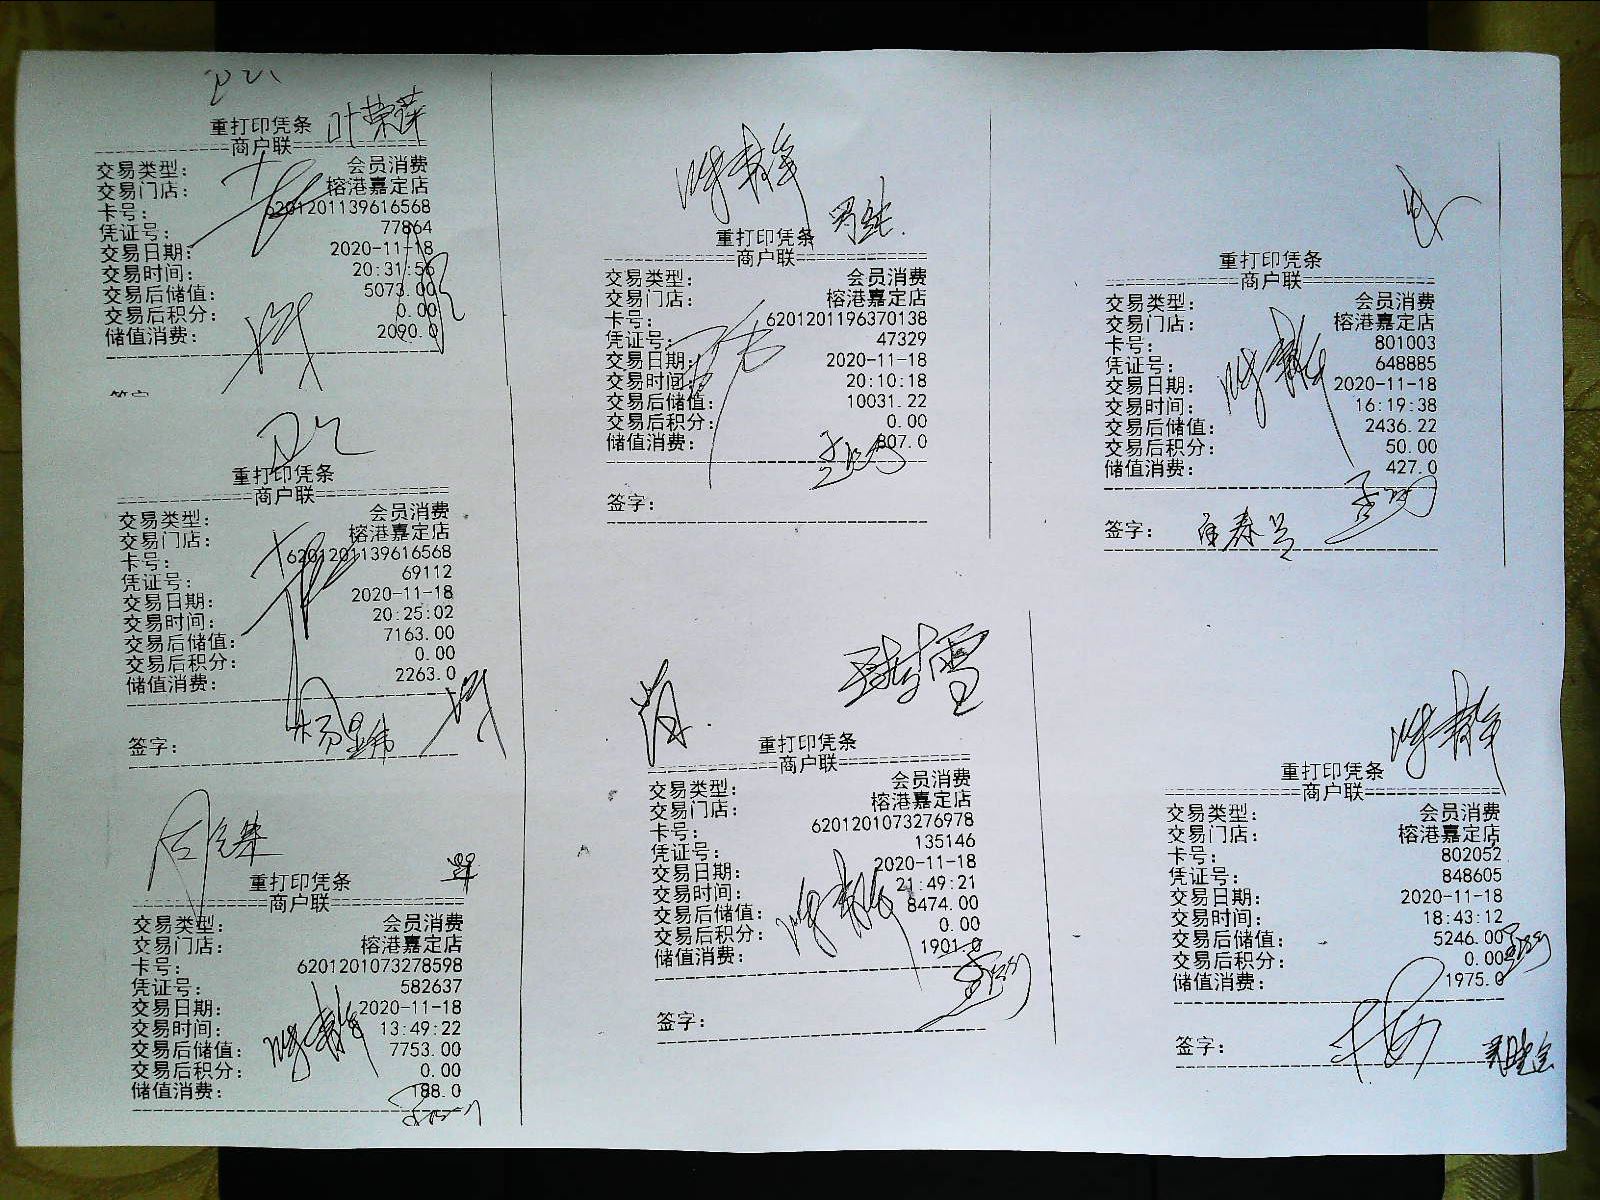 叶荣莲
重打印凭条
商户联
交易类型: 会员消费
交易门店: 榕港嘉定店
卡号: 6201201139616568
凭证号: 77864
交易日期: 2020-11-18
交易时间: 20:31:56
交易后储值: 5073.00
交易后积分: 0.00
储值消费: 2090.0
重打印凭条
商户联
交易类型: 会员消费
交易门店: 榕港嘉定店
卡号: 6201201139616568
凭证号: 69112
交易日期: 2020-11-18
交易时间: 20:25:02
交易后储值: 7163.00
交易后积分: 0.00
储值消费: 2263.0
签字: 杨显伟
重打印凭条
商户联
交易类型: 会员消费
交易门店: 榕港嘉定店
卡号: 6201201073278598
凭证号: 582637
交易日期: 2020-11-18
交易时间: 13:49:22
交易后储值: 7753.00
交易后积分: 0.00
储值消费: 188.0
重打印凭条
商户联
交易类型: 会员消费
交易门店: 榕港嘉定店
卡号: 6201201196370138
凭证号: 47329
交易日期: 2020-11-18
交易时间: 20:10:18
交易后储值: 10031.22
交易后积分: 0.00
储值消费: 807.0
签字:
重打印凭条
商户联
交易类型: 会员消费
交易门店: 榕港嘉定店
卡号: 6201201073276978
凭证号: 135146
交易日期: 2020-11-18
交易时间: 21:49:21
交易后储值: 8474.00
交易后积分: 0.00
储值消费: 1901.0
签字:
重打印凭条
商户联
交易类型: 会员消费
交易门店: 榕港嘉定店
卡号: 801003
凭证号: 648885
交易日期: 2020-11-18
交易时间: 16:19:38
交易后储值: 2436.22
交易后积分: 50.00
储值消费: 427.0
签字:
重打印凭条
商户联
交易类型: 会员消费
交易门店: 榕港嘉定店
卡号: 802052
凭证号: 848605
交易日期: 2020-11-18
交易时间: 18:43:12
交易后储值: 5246.00
交易后积分: 0.00
储值消费: 1975.0
签字: